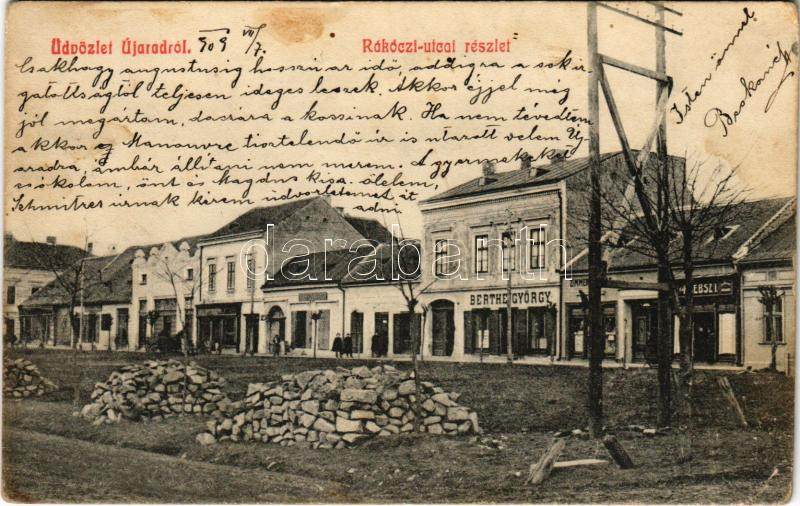 Üdvözlet Újaradról. 909 VII/7.
Rákóczi-utcai részlet
Csakhogy augusztusig hosszú az idő, addigra a sokir
gatottságtól teljesen ideges leszek. Akkor éjjel még
jól megártam, daczára a kossinak. Ha nem tévedtem
akkor ez Manouvre tisztelendő úr is utazott velem Uj
aradra, ámbár állítani nem merem. A gyermekeket
csókolom, önt és Magdus kisa. ölelem,
Schmitzer úrnak kérem üdvözletemet át
adni
Isten önnel
BERTHE GYÖRGY
ZIMMER
EBSZ I
darabanth